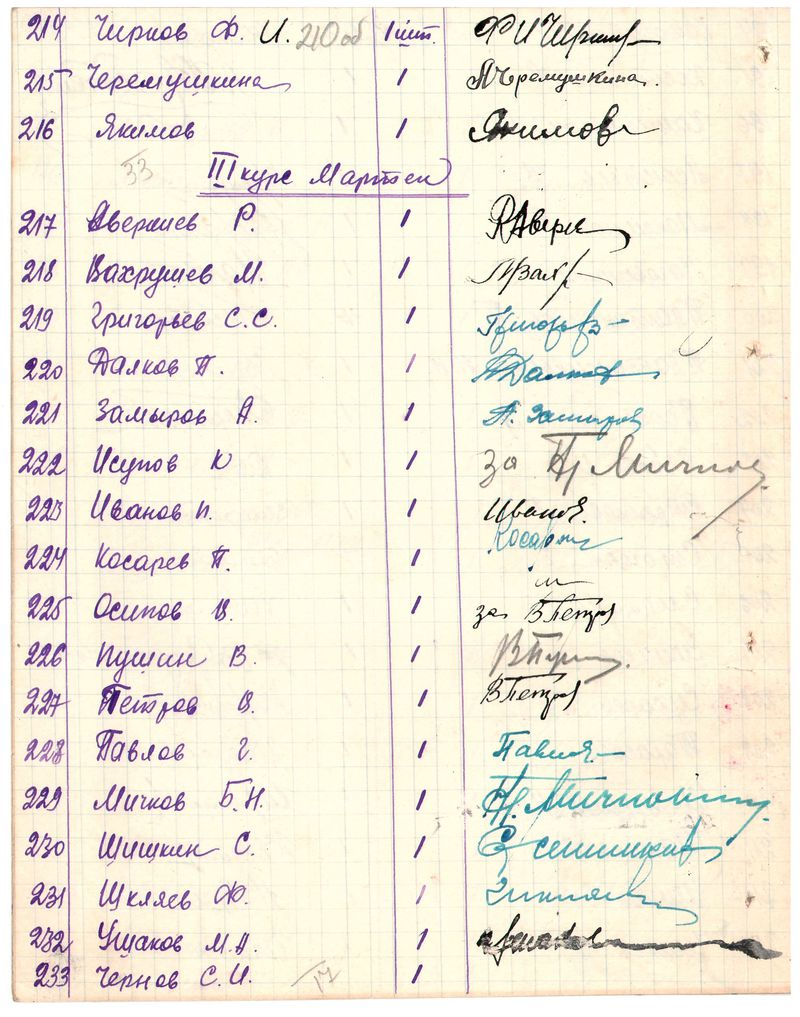 214 Чирков Ф. И. 210 об 1 шт. ФИ Чирк
215 Черемушкина 1 А Черемушкина.
216 Якимов 1 Якимов
33
III курс Мартен
217 Аверкиев Р. 1 РАверк
218 Вахрушев М. 1 МВахр
219 Григорьев С.С. 1 Григорьев
220 Далков П. 1 Далков
221 Замыров А. 1 А. Замыров
222 Исупов К 1 за
223 Иванов И. 1 Иванов
224 Косарев П. 1 Косарев
225 Осипов В. 1 за ВПетров
226 Пушин В. 1 ВПуш
227 Петров В. 1 ВПетров
228 Павлов Г. 1 Павлов
229 Мичков Б.Н. 1
230 Шишкин С. 1
231 Шкляев Ф. 1 Шкляев
232 Ушаков М.А. 1 Ушаков
233 Чернов С.И. 17 1